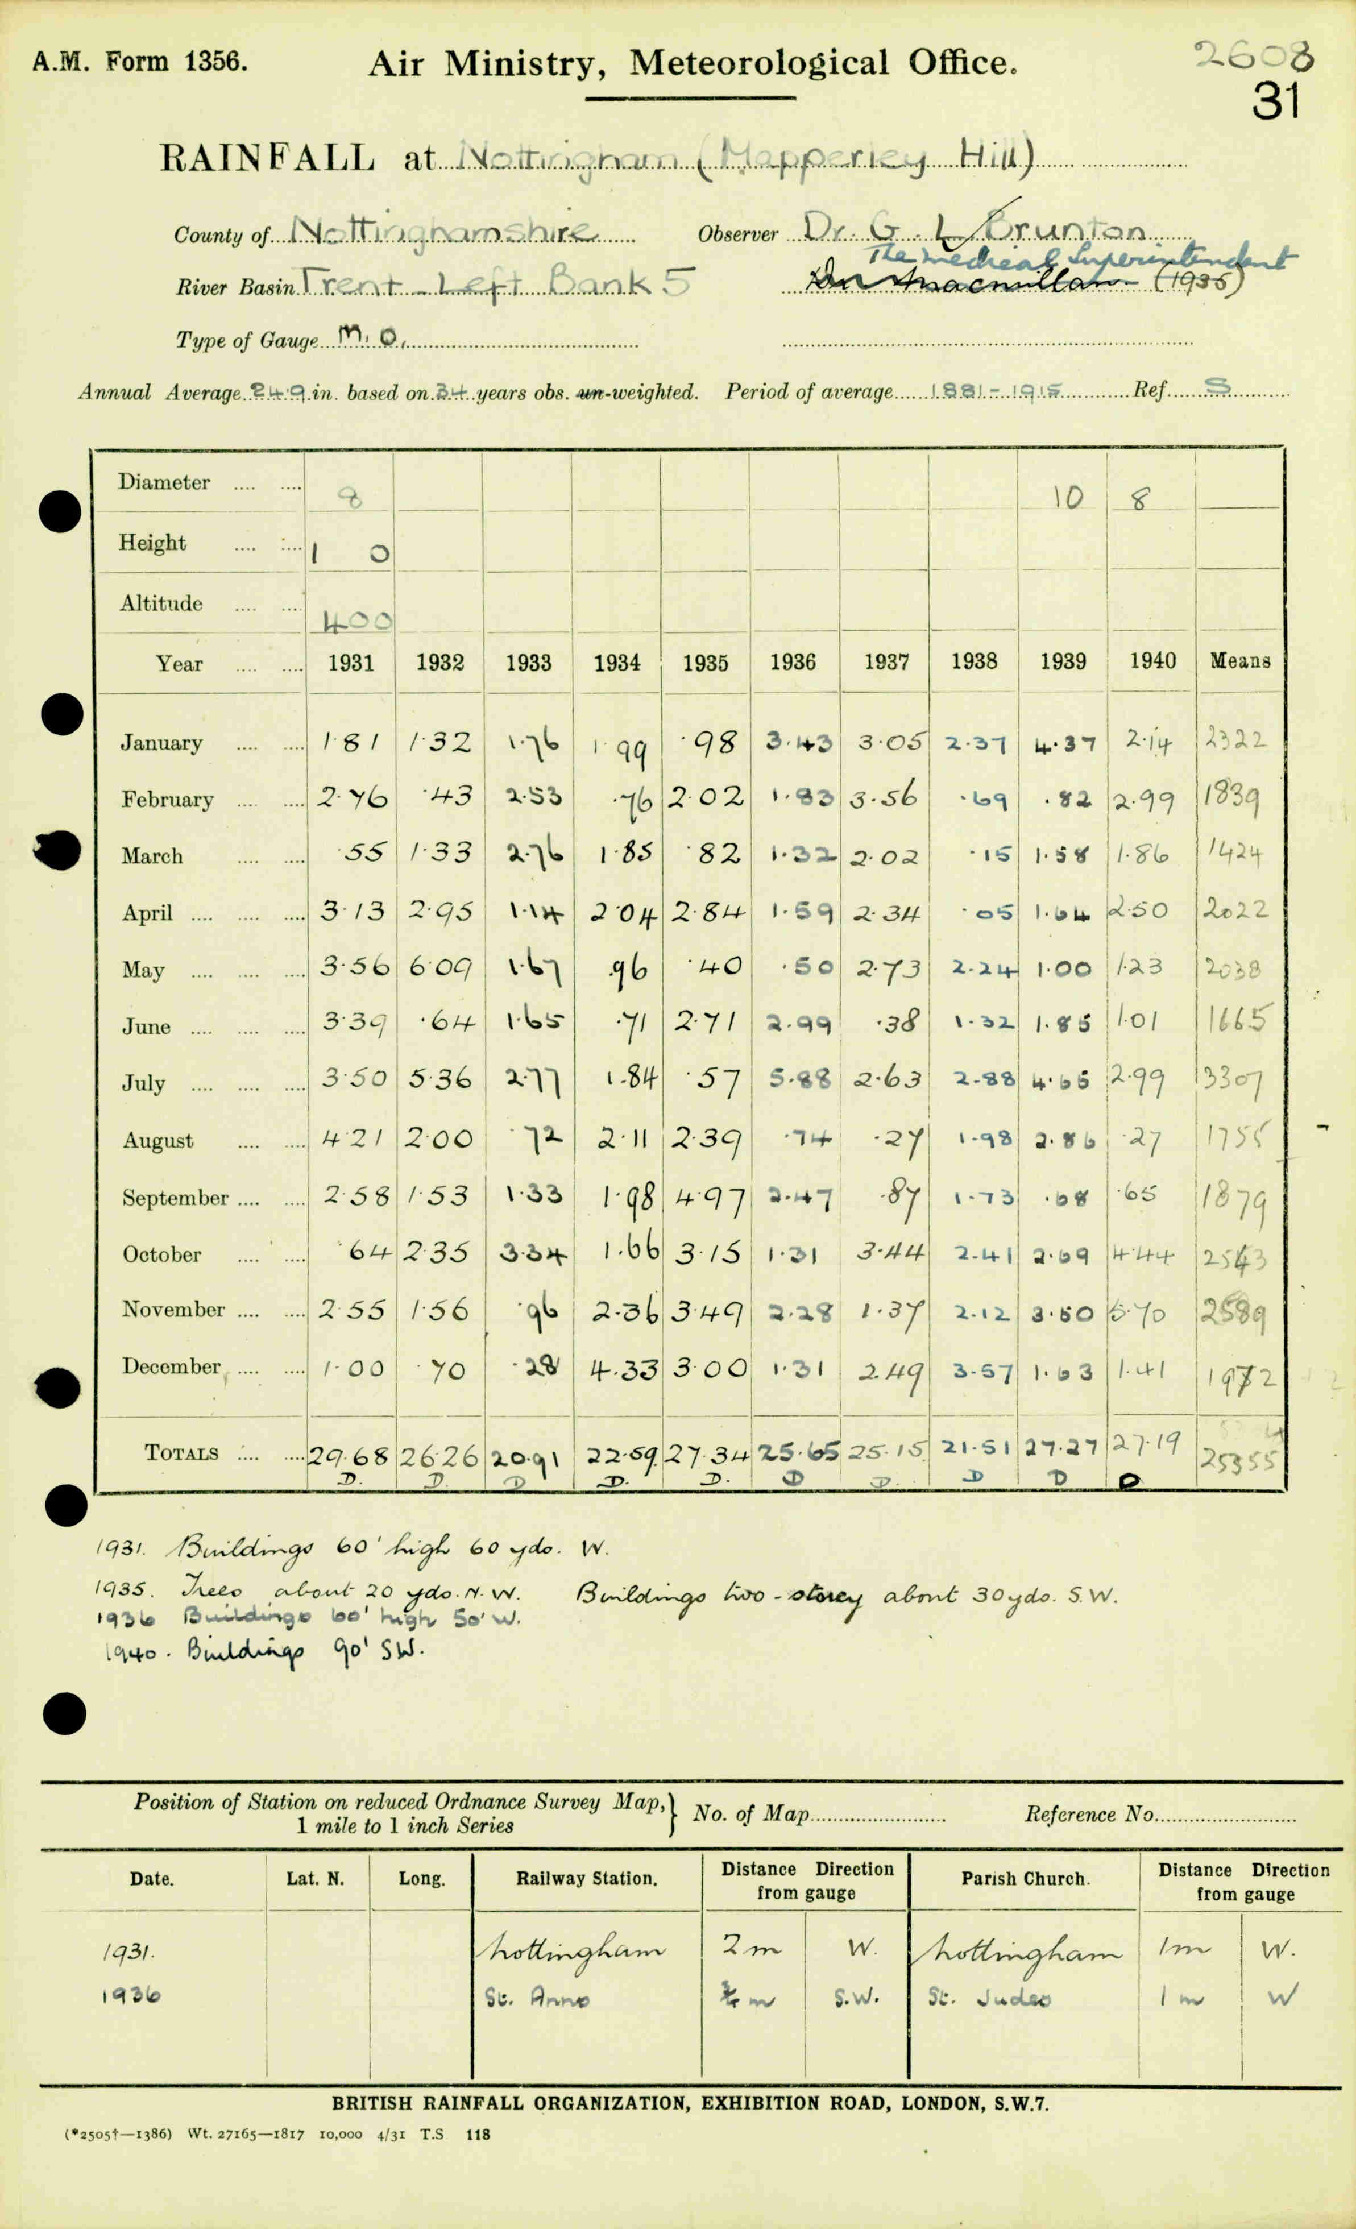 A.M. Form 1356. Air Ministry, Meteorological Office. 2608
31
RAINFALL at Nottingham (Mapperley Hill)
County of Nottinghamshire Observer Dr. G. L Brunton
The Medical Superintendent
River Basin Trent - Left Bank 5 Dr Macmillan (1935)
Type of Gauge M. O.
Annual Average 24.9 in. based on 34 years obs. un-weighted. Period of average 1881-1915 Ref. S
Diameter 8 10 8
Height 1 0
Altitude 400
Year 1931 1932 1933 1934 1935 1936 1937 1938 1939 1940 Means
January 1.81 1.32 1.76 1.99 .98 3.43 3.05 2.37 4.37 2.14 2322
February 2.76 .43 2.53 .76 2.02 1.83 3.56 .69 .82 2.99 1839
March .55 1.33 2.76 1.85 .82 1.32 2.02 .15 1.58 1.86 1424
April 3.13 2.95 1.14 2.04 2.84 1.59 2.34 .05 1.64 2.50 2022
May 3.56 6.09 1.67 .96 .40 .50 2.73 2.24 1.00 1.23 2038
June 3.39 .64 1.65 .71 2.71 2.99 .38 1.32 1.85 1.01 1665
July 3.50 5.36 2.77 1.84 .57 5.88 2.63 2.88 4.65 2.99 3307
August 4.21 2.00 .72 2.11 2.39 .74 .27 1.98 2.86 .27 1755
September 2.58 1.53 1.33 1.98 4.97 2.47 .87 1.73 .68 .65 1879
October .64 2.35 3.34 1.66 3.15 1.31 3.44 2.41 2.69 4.44 2543
November 2.55 1.56 .96 2.36 3.49 2.28 1.37 2.12 3.50 5.70 2589
December 1.00 .70 .28 4.33 3.00 1.31 2.49 3.57 1.63 1.41 1972
TOTALS 29.68 26.26 20.91 22.59 27.34 25.65 25.15 21.51 27.27 27.19 25355
D. D. D D. D. D D. D D D
1931. Buildings 60' high 60 yds. W.
1935. Trees about 20 yds. N.W. Buildings two-storey about 30 yds. S.W.
1936 Buildings 60' high 50' W.
1940. Buildings 90' SW.
Position of Station on reduced Ordnance Survey Map, 1 mile to 1 inch Series No. of Map Reference No.
Date. Lat. N. Long. Railway Station. Distance Direction from gauge Parish Church. Distance Direction from gauge
1931. Nottingham 2 m W. Nottingham 1m W.
1936 St. Anns ¾ m S.W. St. Judes 1 m W
BRITISH RAINFALL ORGANIZATION, EXHIBITION ROAD, LONDON, S.W.7.
(*2505†—1386) Wt. 27165—1817 10,000 4/31 T.S 118